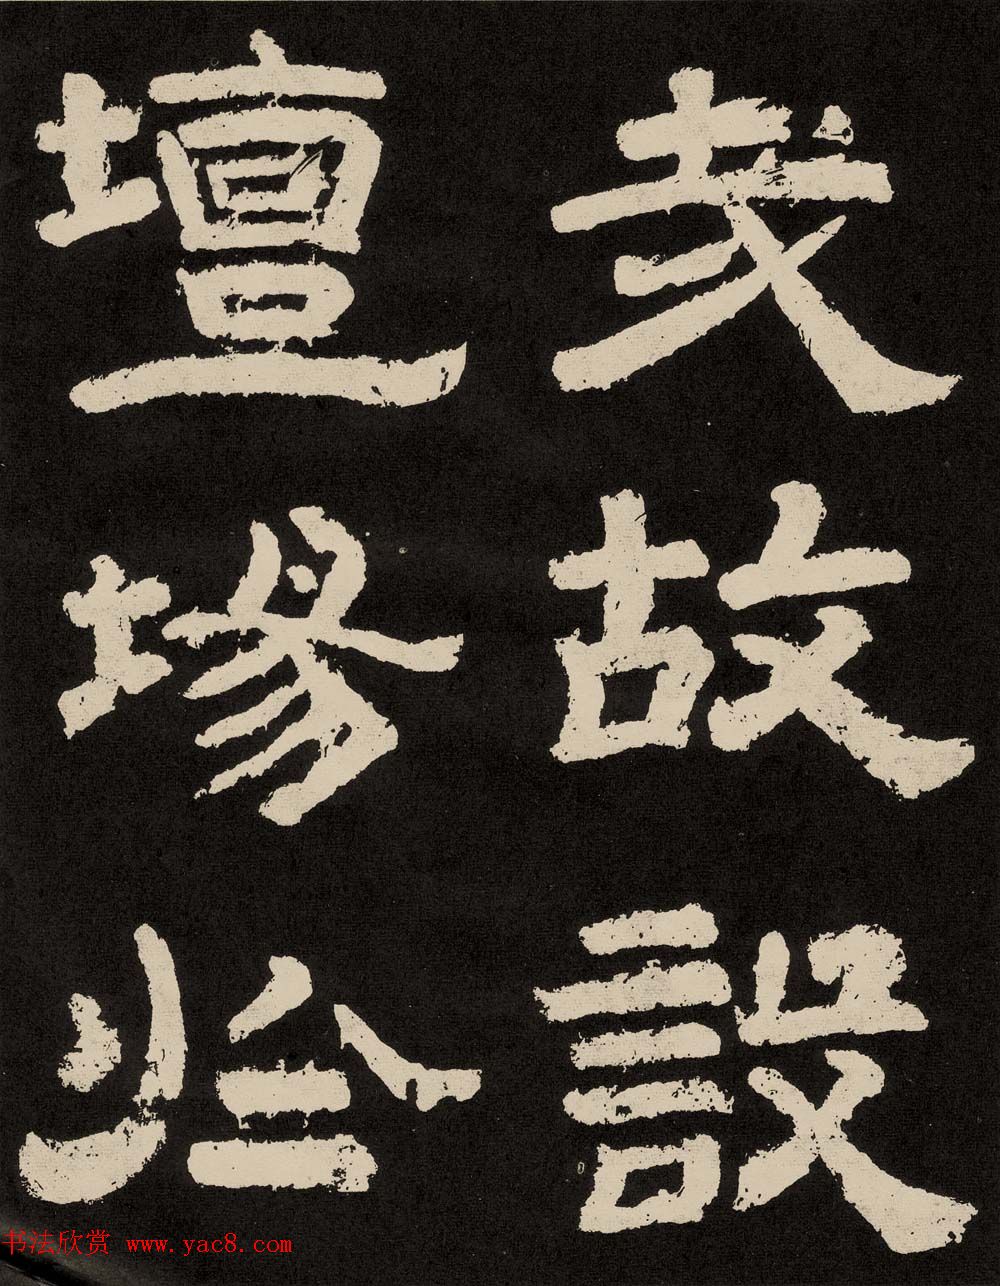 故設
壇場於
书法欣赏 www.yac8.com